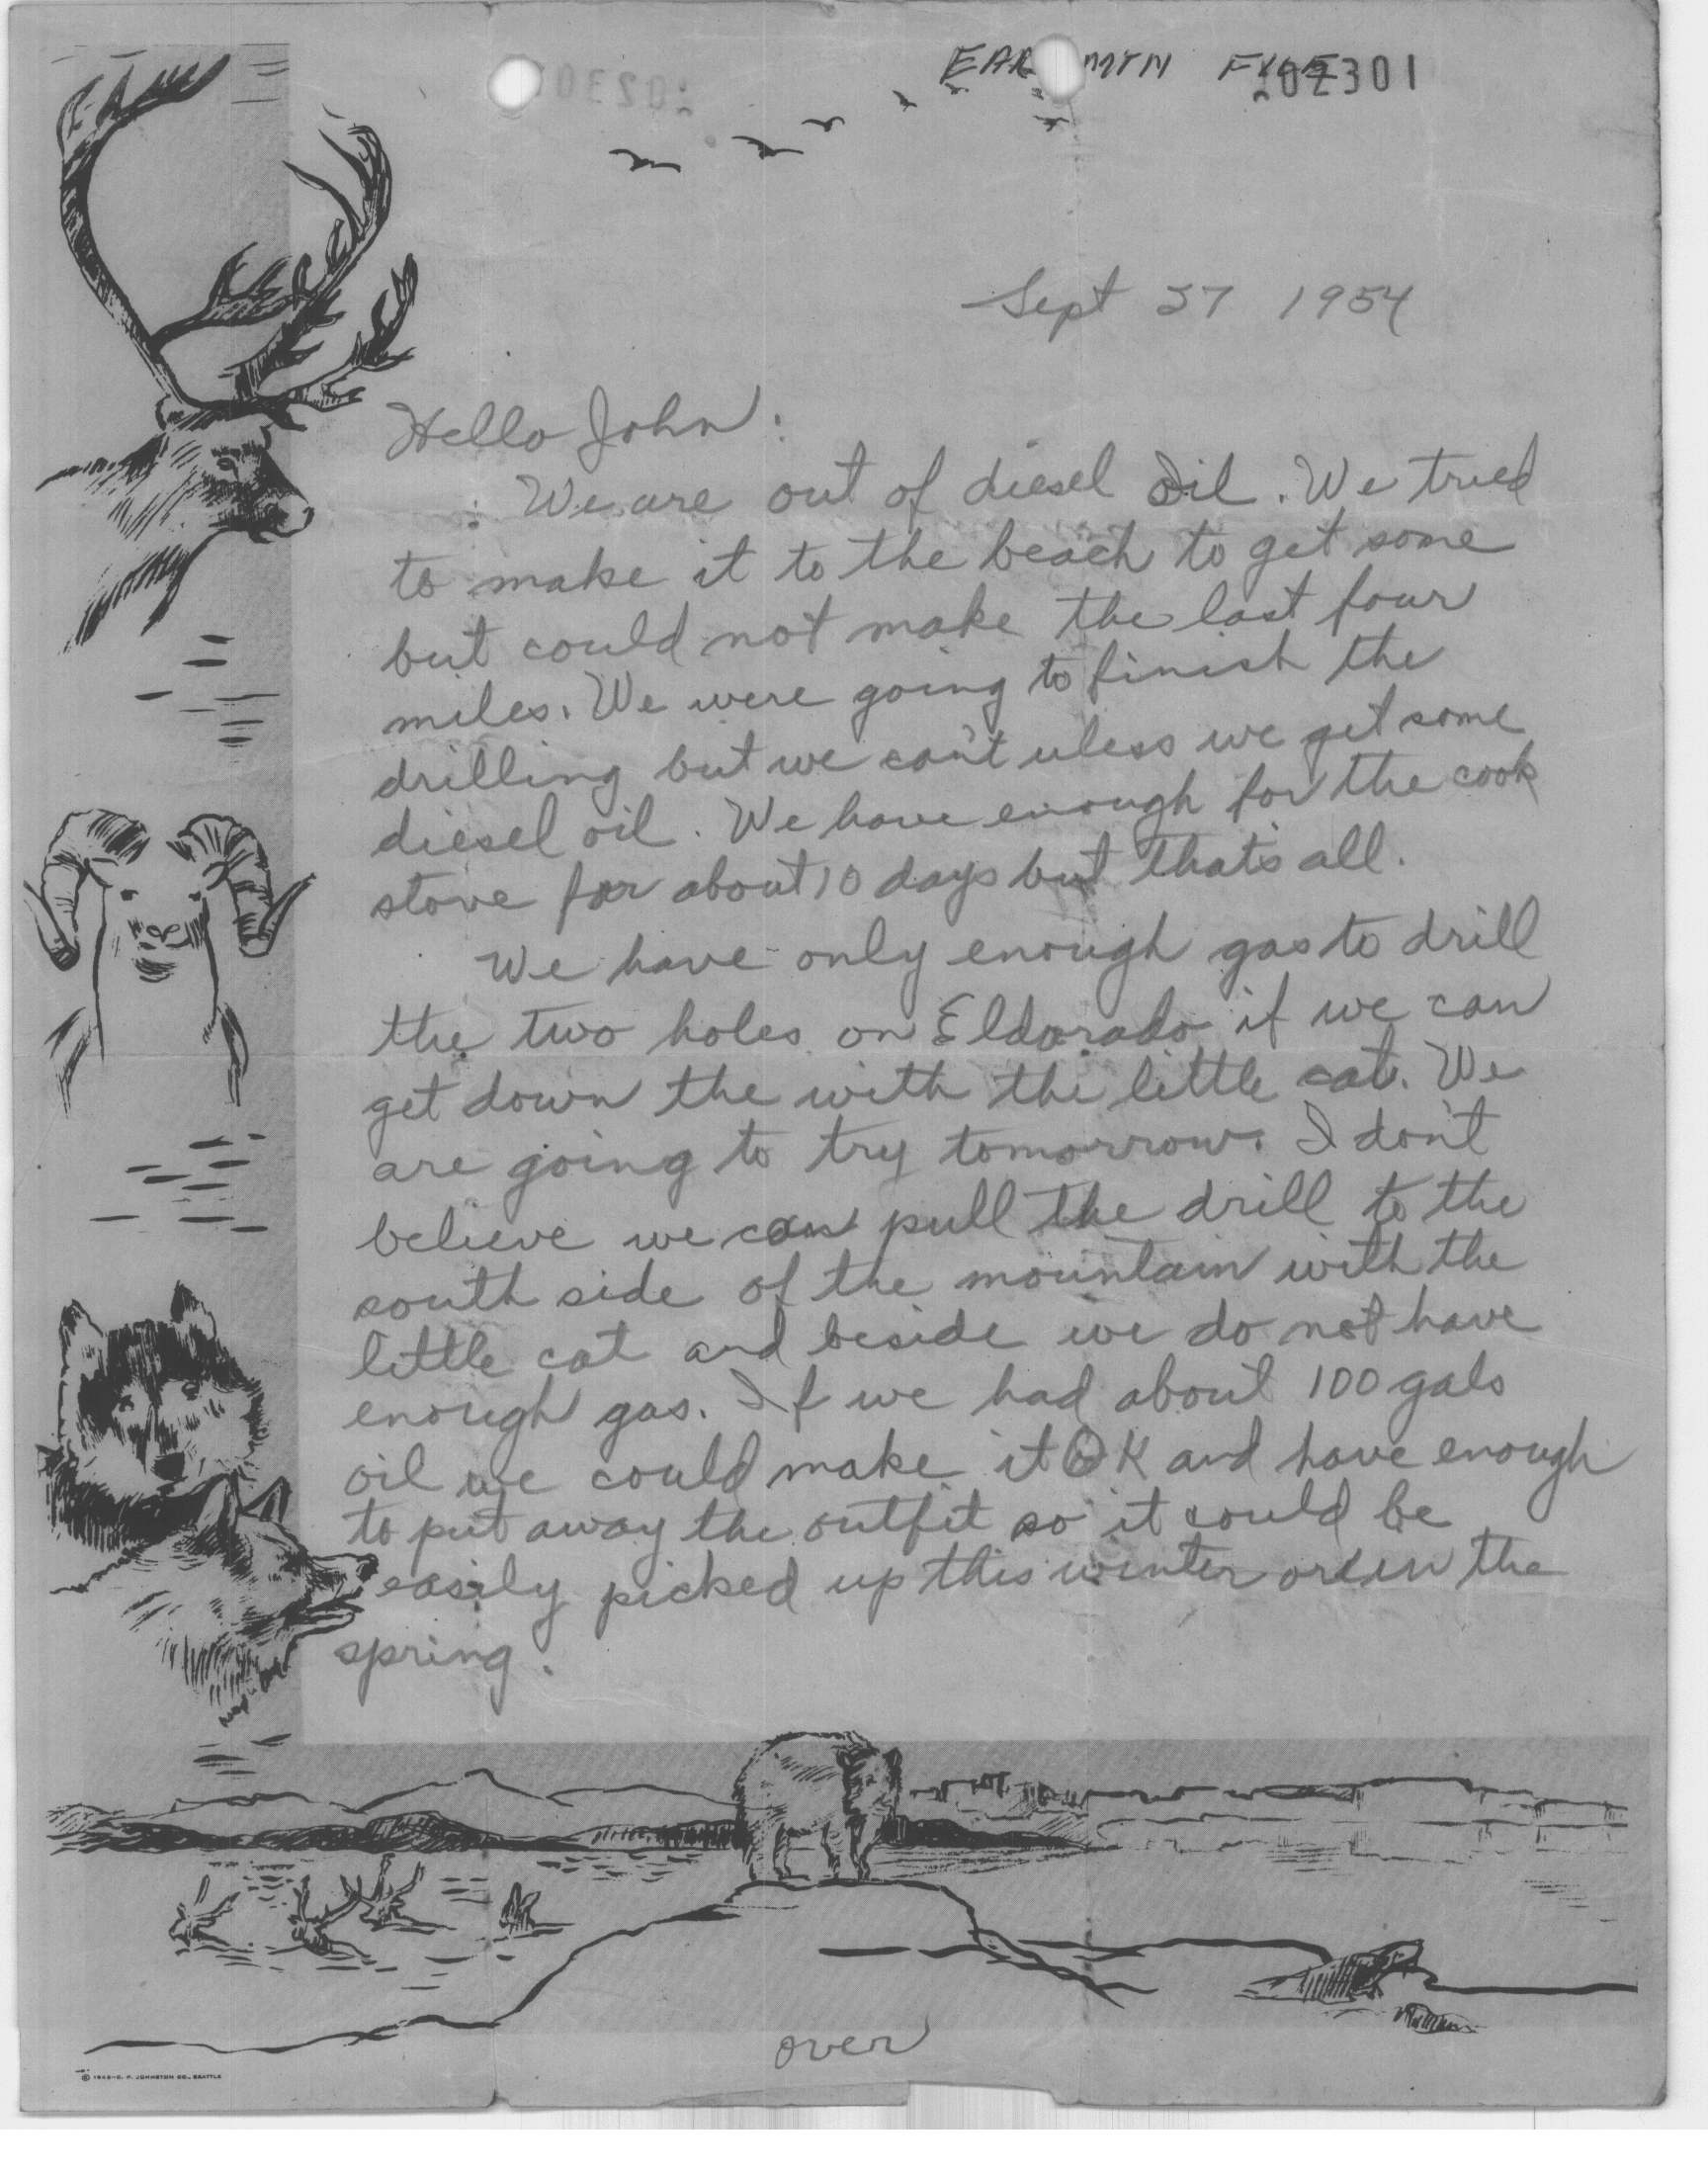 EAR MTN FILE
02301
Sept 27 1954
Hello John:
We are out of diesel oil. We tried
to make it to the beach to get some
but could not make the last four
miles. We were going to finish the
drilling but we can't uless we get some
diesel oil. We have enough for the cook
stove for about 10 days but that's all.
We have only enough gas to drill
the two holes on Eldorado if we can
get down the with the little cat. We
are going to try tomorrow. I don't
believe we can pull the drill to the
south side of the mountain with the
little cat and beside we do not have
enough gas. If we had about 100 gals
oil we could make it OK and have enough
to put away the outfit so it could be
easily picked up this winter or in the
spring.
over
JOHNSTON CO., SEATTLE